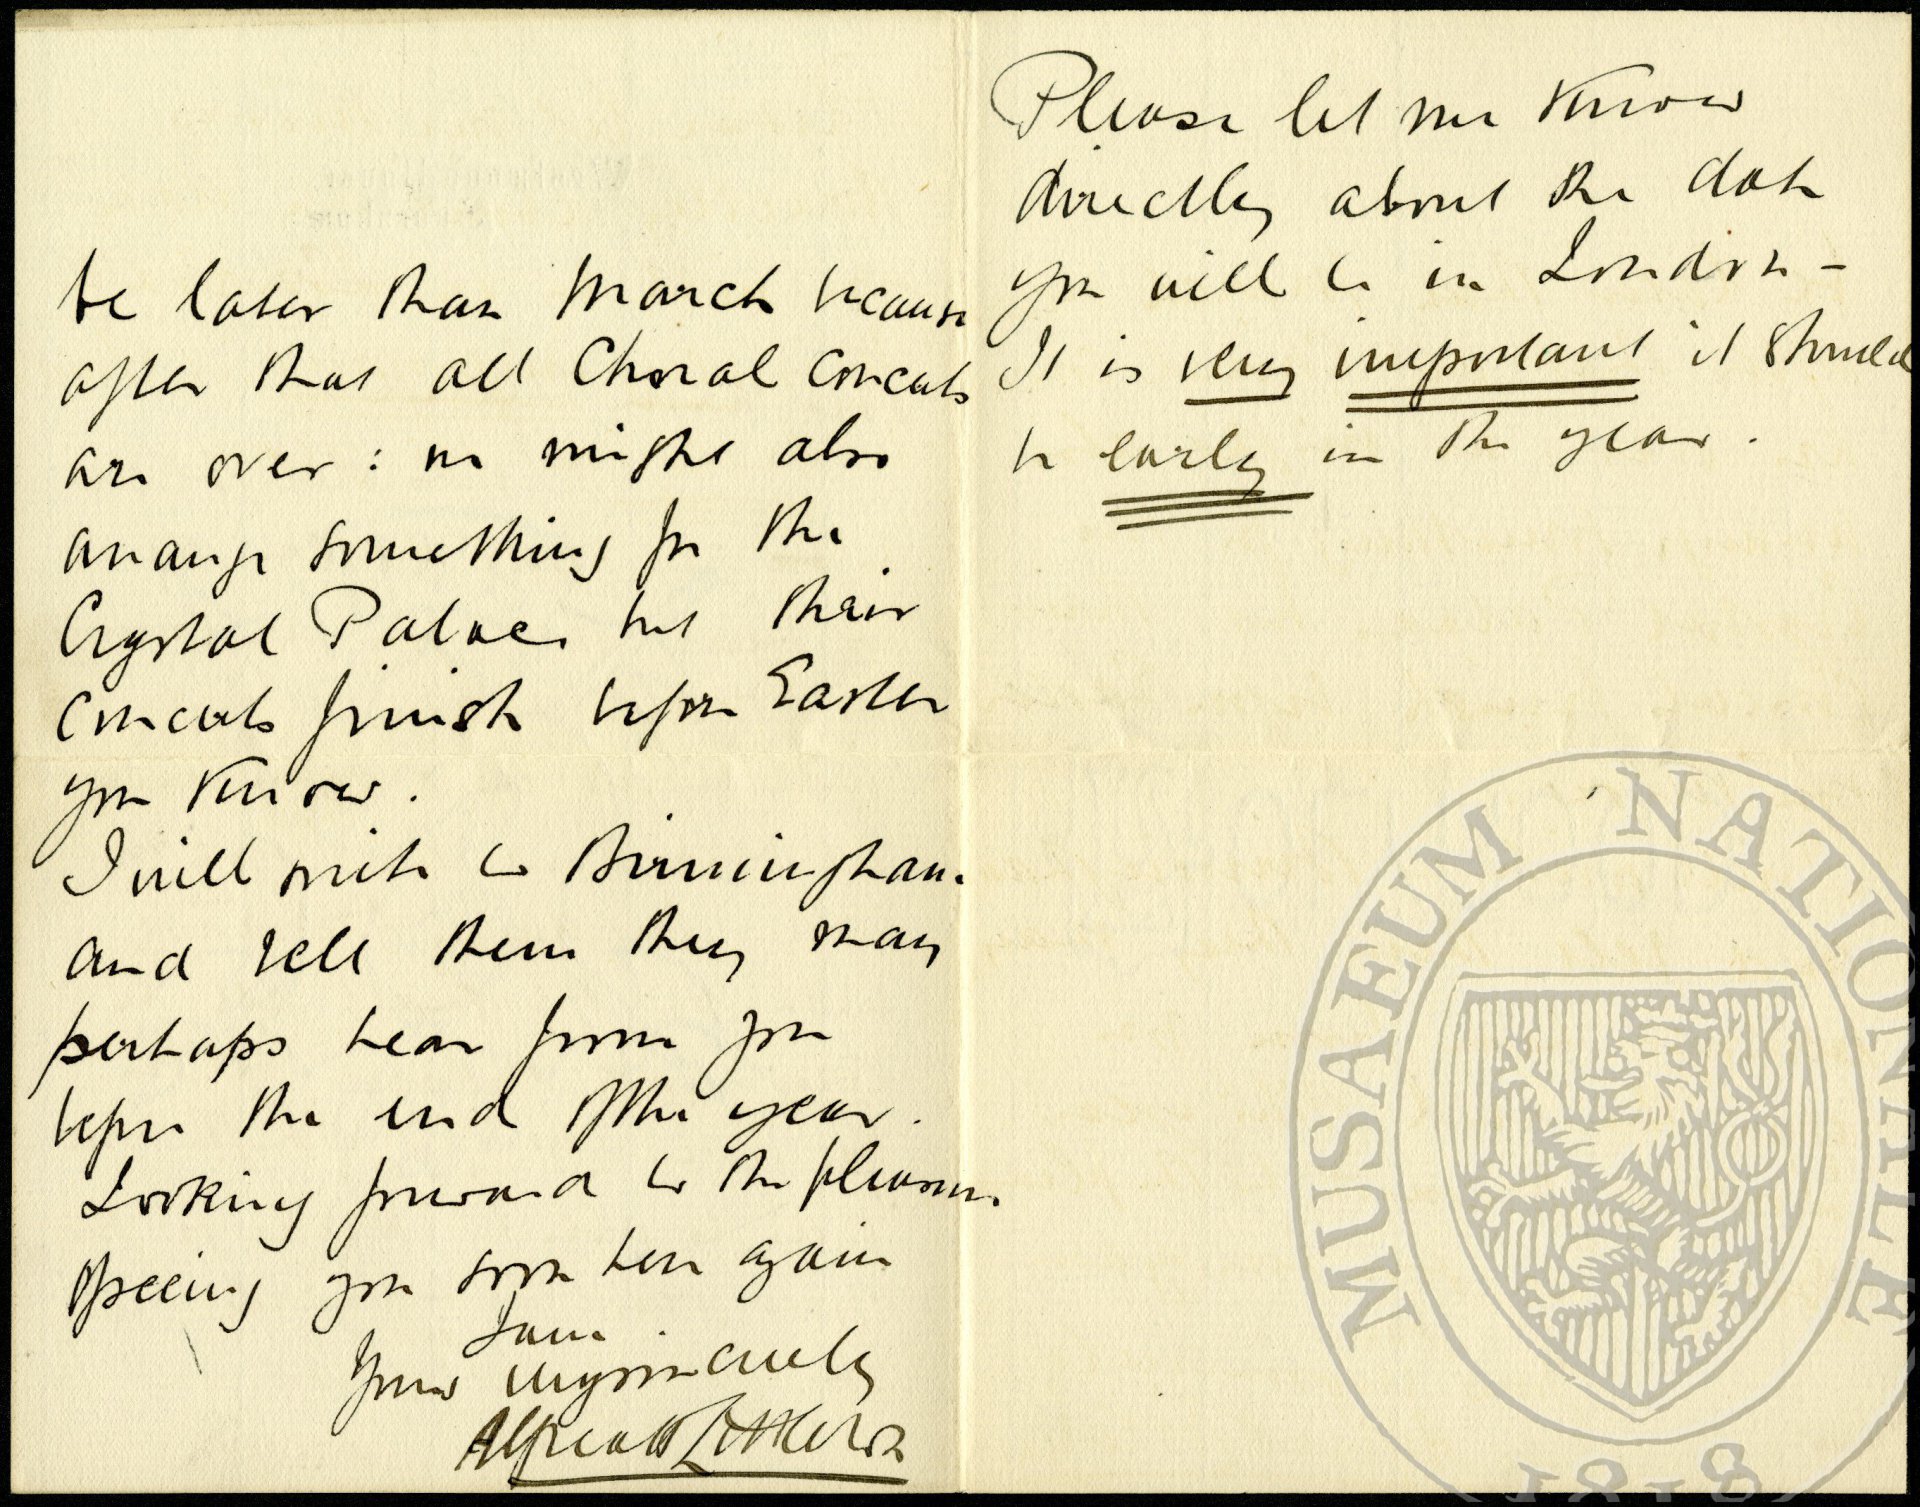 be later than March because
after that all Choral Concerts
are over: we might also
arrange something for the
Crystal Palace, but their
Concerts finish before Easter
you know.
I will write to Birmingham
and tell them they may
perhaps hear from you
before the end of the year.
Looking forward to the pleasure
of seeing you soon here again
I am
Yours very sincerely
Alfred H Littleton
Please let me know
directly about the date
you will be in London –
It is very important it should
be early in the year.
MUSAEUM NATIONALE
1818